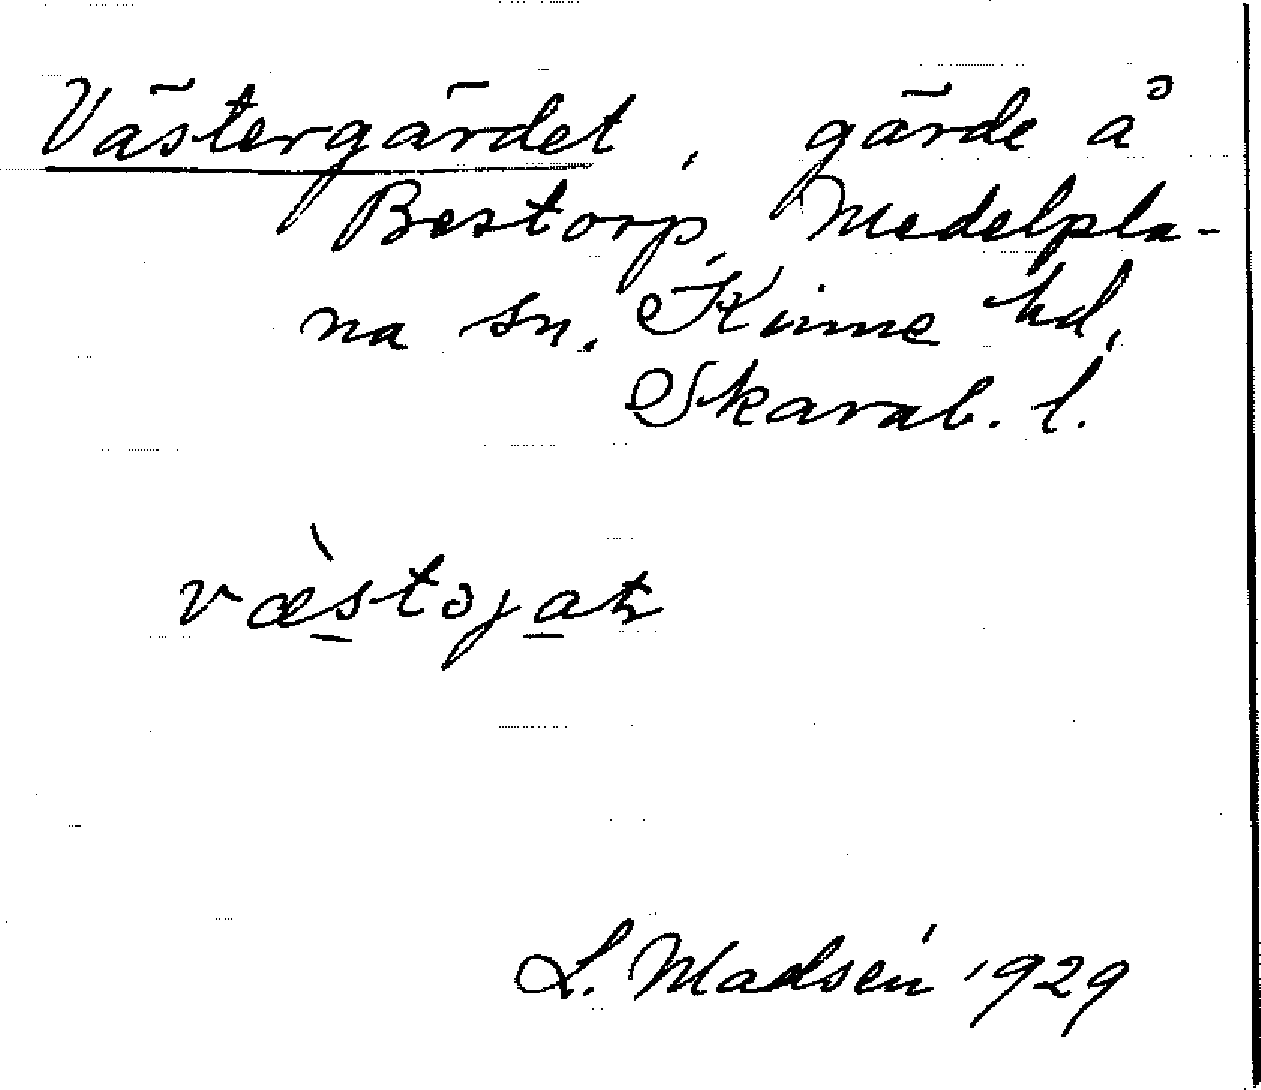 Västergärdet, gärde å
Bestorp, Medelpla-
na sn. Kinne hd,
Skarab. l.
L. Madsén 1929